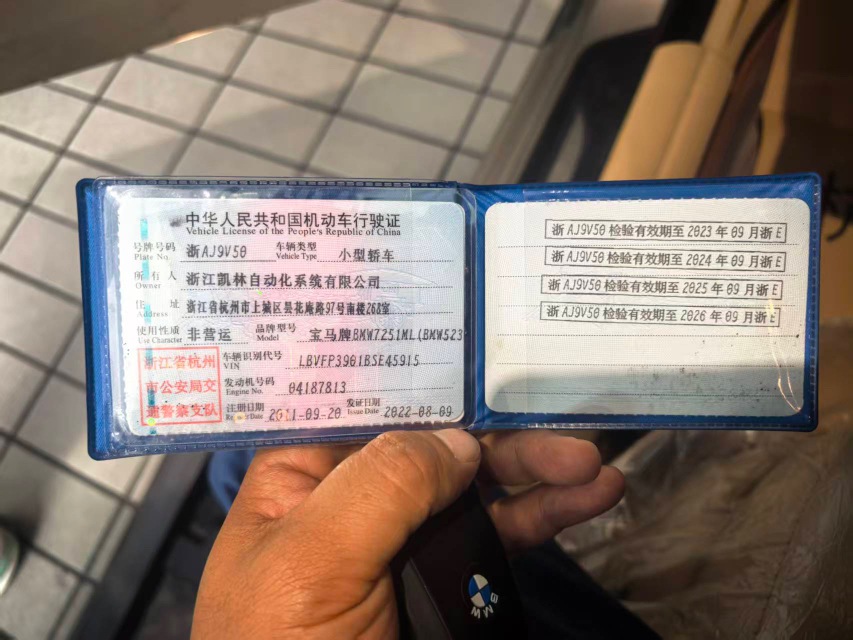 中华人民共和国机动车行驶证
Vehicle License of the People's Republic of China
号牌号码 Plate No. 浙AJ9V50 车辆类型 Vehicle Type 小型轿车
所有人 Owner 浙江凯林自动化系统有限公司
住址 Address 浙江省杭州市上城区昙花庵路97号南楼268室
使用性质 Use Character 非营运 品牌型号 Model 宝马牌BMW7251ML(BMW523
浙江省杭州
市公安局交
通警察支队
车辆识别代号 VIN LBVFP3901BSE45915
发动机号码 Engine No. 04187813
注册日期 Register Date 2011-09-20 发证日期 Issue Date 2022-08-09
浙AJ9V50检验有效期至2023年09月浙E
浙AJ9V50检验有效期至2024年09月浙E
浙AJ9V50检验有效期至2025年09月浙E
浙AJ9V50检验有效期至2026年09月浙E
BMW